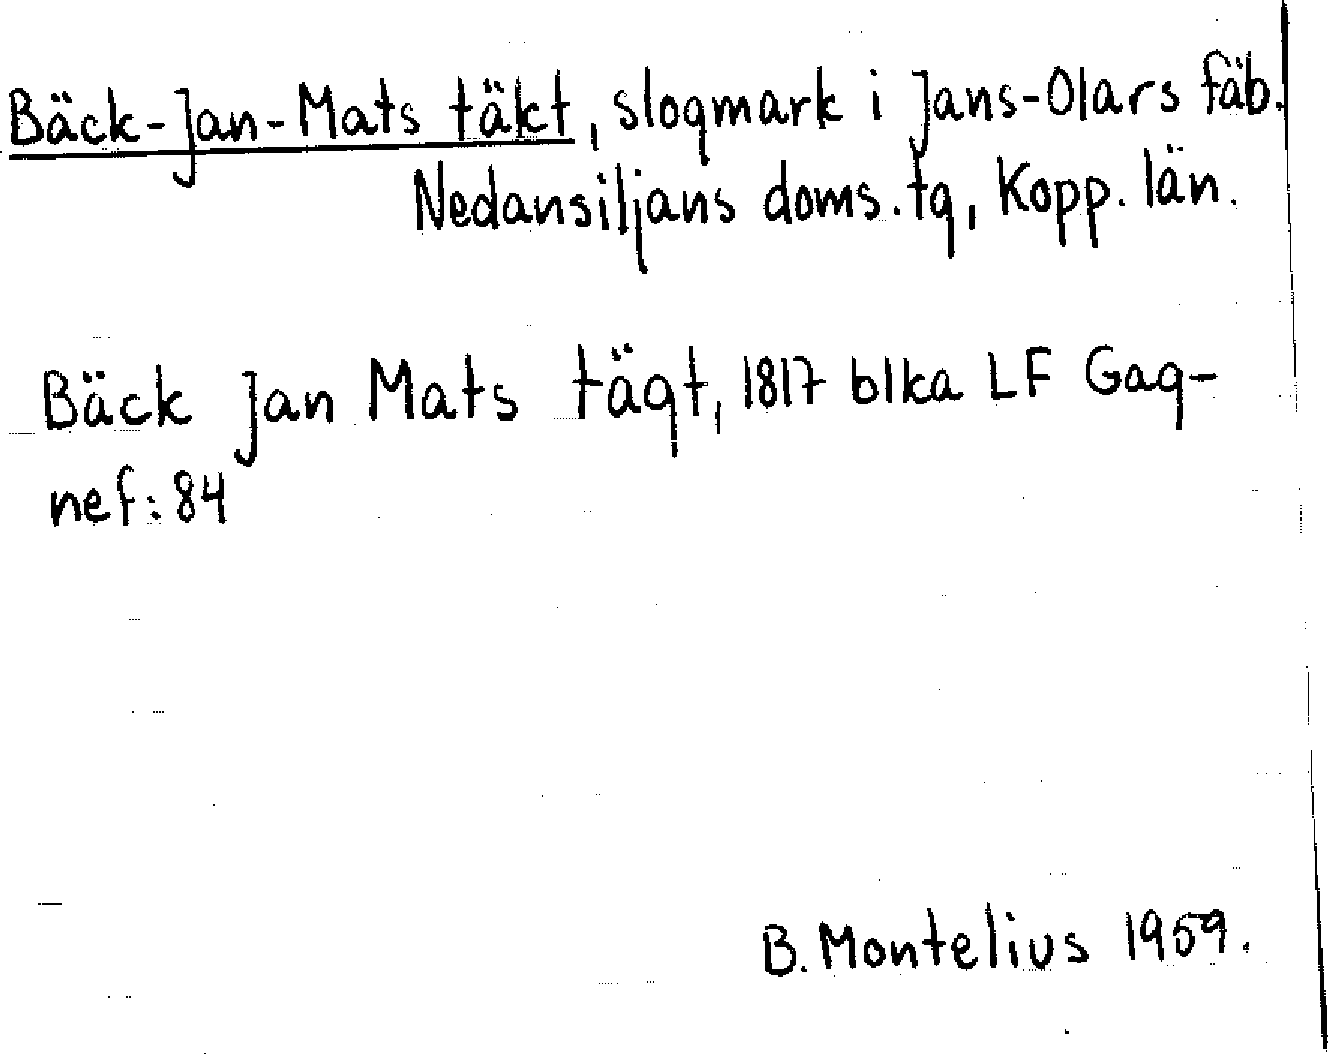 Bäck-Jan-Mats täkt, slogmark i Jans-Olars fäb.
Nedansiljans doms.tg, Kopp. län.
Bäck Jan Mats tägt, 1817 blka LF Gag-
nef: 84
B. Montelius 1959.